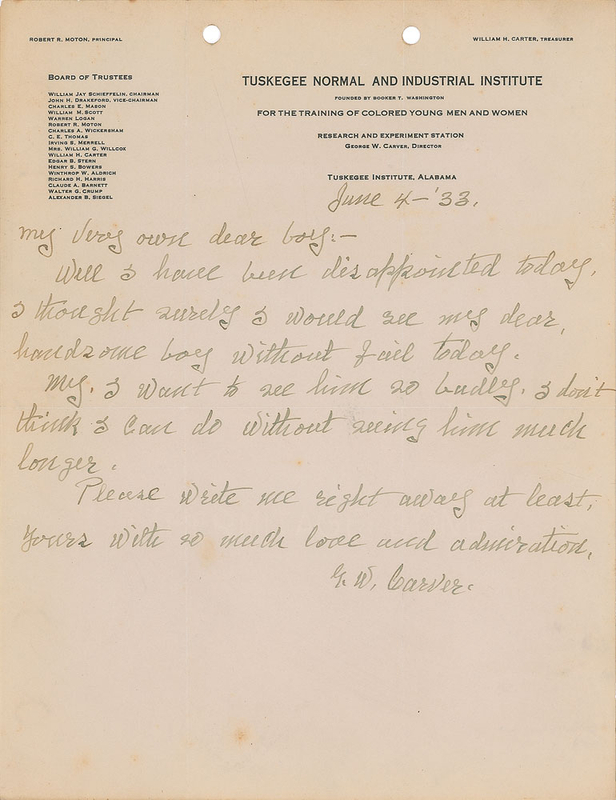 ROBERT R. MOTON, PRINCIPAL
WILLIAM H. CARTER, TREASURER
BOARD OF TRUSTEES
WILLIAM JAY SCHIEFFELIN, CHAIRMAN
JOHN H. DRAKEFORD, VICE-CHAIRMAN
CHARLES E. MASON
WILLIAM M. SCOTT
WARREN LOGAN
ROBERT R. MOTON
CHARLES A. WICKERSHAM
C. E. THOMAS
IRVING S. MERRELL
MRS. WILLIAM G. WILLCOX
WILLIAM H. CARTER
EDGAR B. STERN
HENRY S. BOWERS
WINTHROP W. ALDRICH
RICHARD H. HARRIS
CLAUDE A. BARNETT
WALTER G. CRUMP
ALEXANDER B. SIEGEL
TUSKEGEE NORMAL AND INDUSTRIAL INSTITUTE
FOUNDED BY BOOKER T. WASHINGTON
FOR THE TRAINING OF COLORED YOUNG MEN AND WOMEN
RESEARCH AND EXPERIMENT STATION
GEORGE W. CARVER, DIRECTOR
TUSKEGEE INSTITUTE, ALABAMA
June 4-'33.
My very own dear boy:-
Well I have been disappointed today.
I thought surely I would see my dear,
handsome boy without fail today.
My, I want to see him so badly. I don't
think I can do without seeing him much
longer.
Please write me right away at least.
Yours with so much love and admiration,
G. W. Carver.